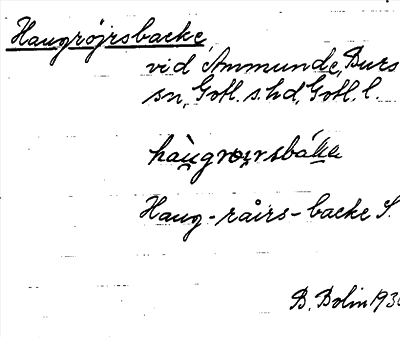 Haugröjrsbacke
vid Ammunde, Burs
sn, Gotl. s. hd, Gotl. l.
Haug-råirs-backe S.
B. Bolin 193